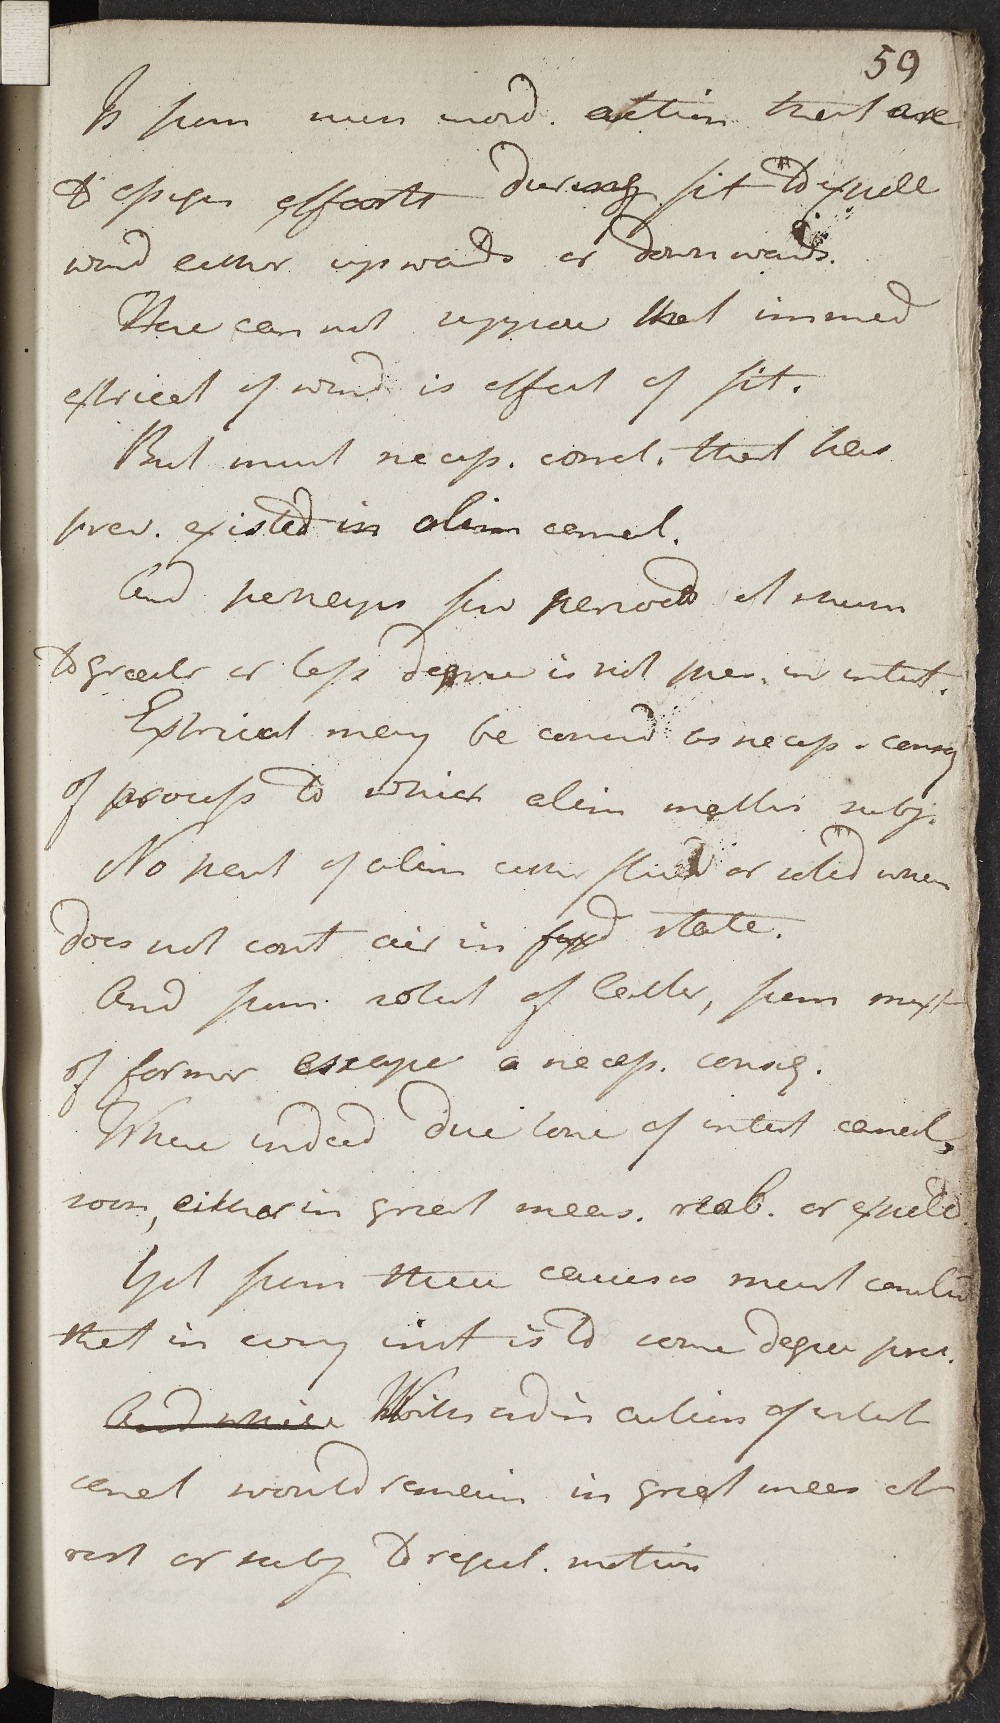 59
Is from men mord. action that are
to effper efforts during fit to expell
wind either upwards or downwards.
Here can not suppose that immed
extricat of wind is effect of fit.
But must necess. concl. that has
prev. existed in alim canal.
And perhaps few periods at whom
to greater or less degree is not pres. in intest.
Extricat may be consid as necess. conseq
of process to which alim matter subj.
No part of alim either fluid or solid when
does not cont air in fixd state.
And from solut of latter, from mixt
of former escape a necess. conseq.
Where indeed due tone of intest canal,
soon, either in great meas. reab. or expeld
Yet from these causes must conclud
that in every inst is to some degree pres.
And while With ordin action of intest
canal would remain in great meas at
rest or subj to regul. motion